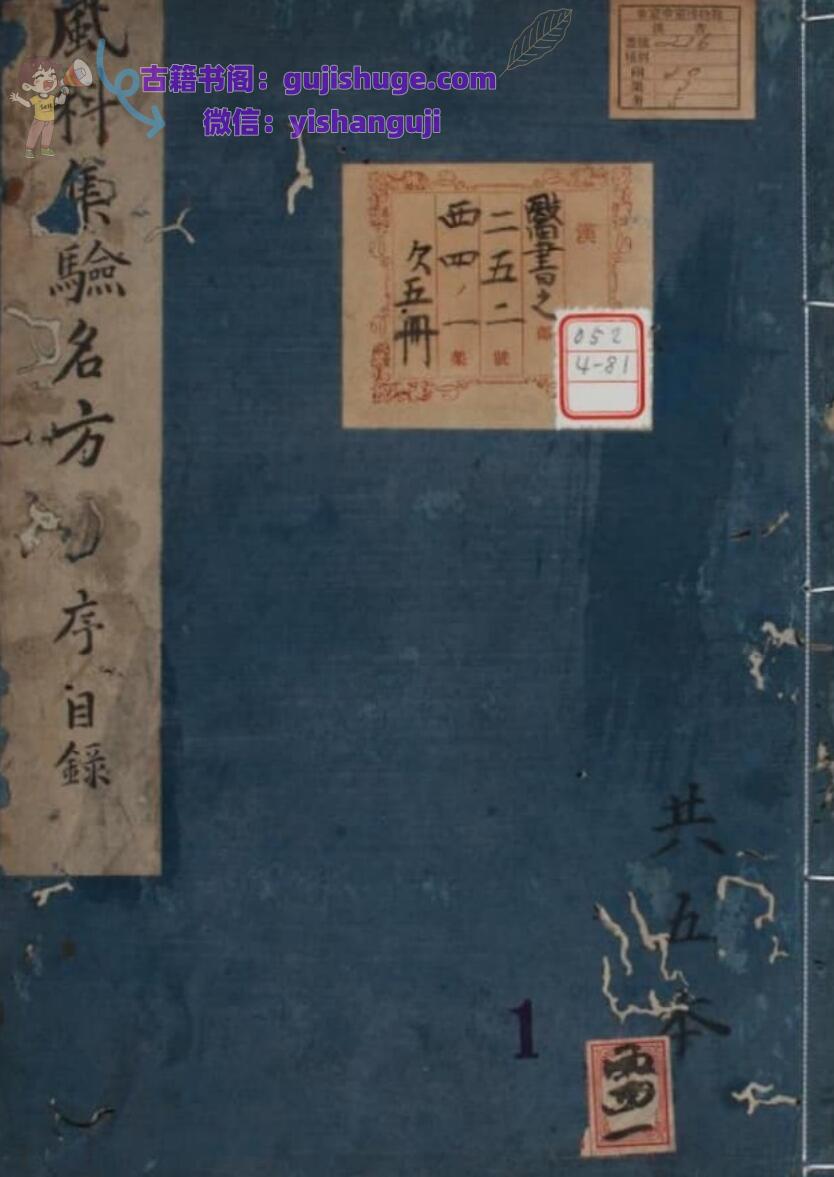 風科集驗名方
序目錄
古籍书阁：gujishuge.com
微信：yishanguji
漢
醫書之
部
二五二
號
西四ノ一
架
欠五冊
052
4-81
共五本
1
西四一